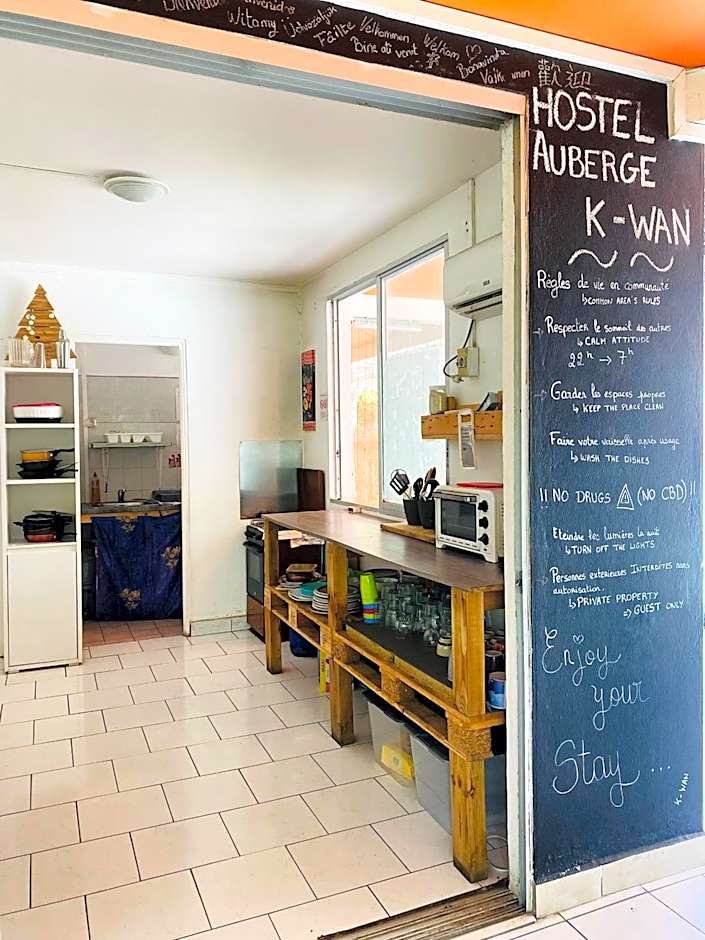 Bienvenu
Witamy Üdvözöljük
Fáilte Velkommen Welkom
Bine ati venit Bonavinuta
Vaikunan 歡迎
HOSTEL
AUBERGE
K-WAN
Règles de vie en communauté
↳ COMMON AREA'S RULES
Respecter le sommeil des autres
↳ CALM ATTITUDE
22h → 7h
Garder les espaces propres
↳ KEEP THE PLACE CLEAN
Faire votre vaisselle après usage
↳ WASH THE DISHES
!! NO DRUGS ⚠ (NO CBD) !!
Eteindre les lumières la nuit
↳ TURN OFF THE LIGHTS
Personnes exterieures INTERDITES sans
autorisation
↳ PRIVATE PROPERTY
⇒ GUEST ONLY
Enjoy
your
Stay ...
K-WAN